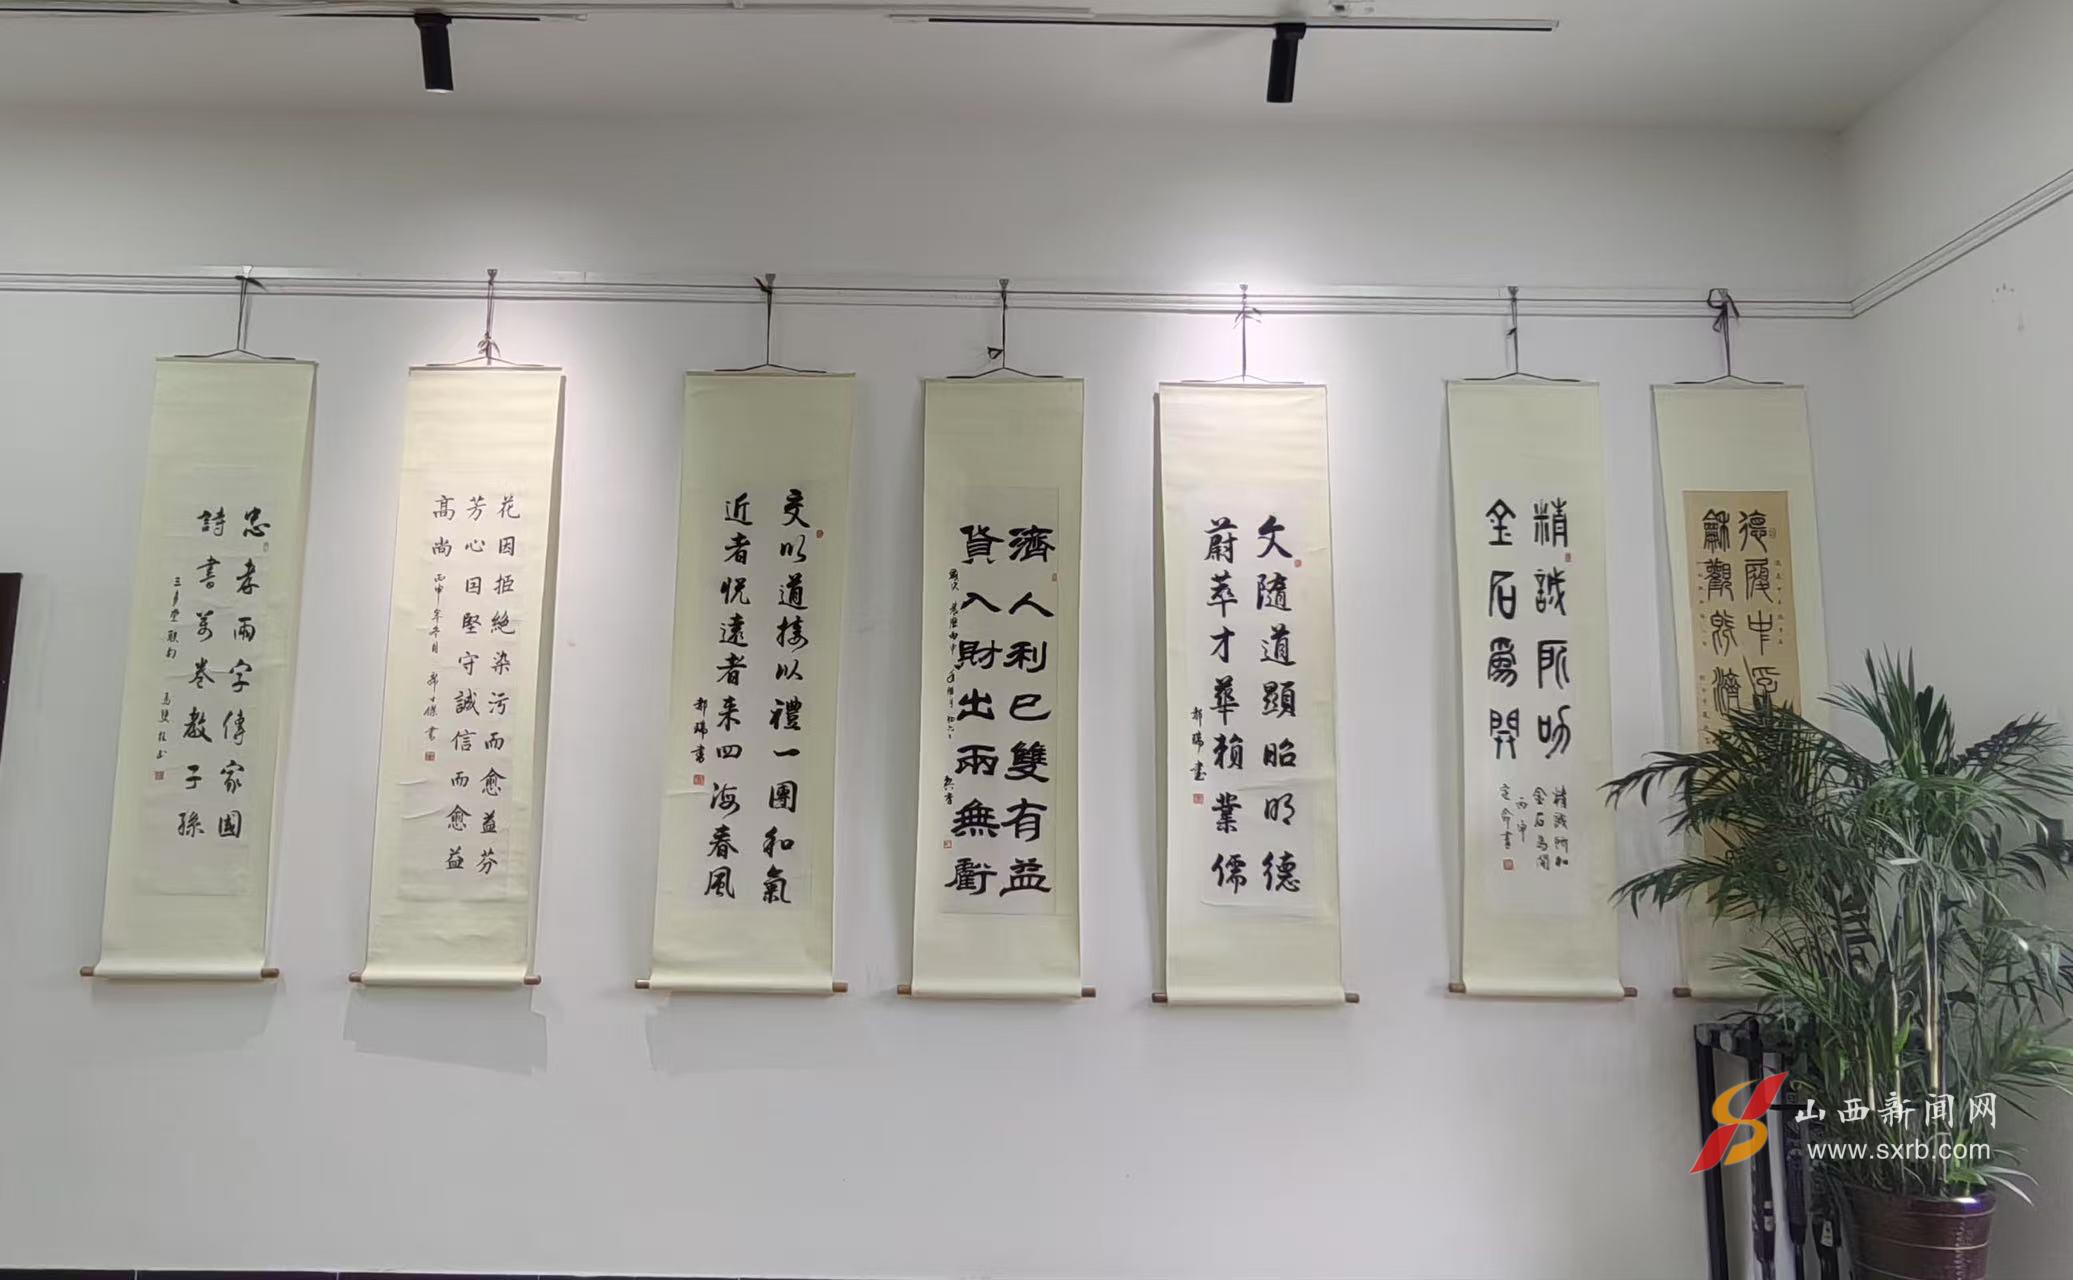 忠孝兩字傳家國
詩書萬卷教子孫
馬雙柱書
花因拒絕染污而愈益芬
芳心因堅守誠信而愈益
高尚
丙申年冬月
書
交以道接以禮一團和氣
近者悅遠者來四海春風
郝瑞書
濟人利己雙有益
貨入財出兩無虧
文隨道顯昭明德
蔚萃才華積業儒
郝瑞書
精誠所加
金石為開
精誠所加
金石為開
丙申
德履中
龢觀
濟
山西新闻网
www.sxrb.com